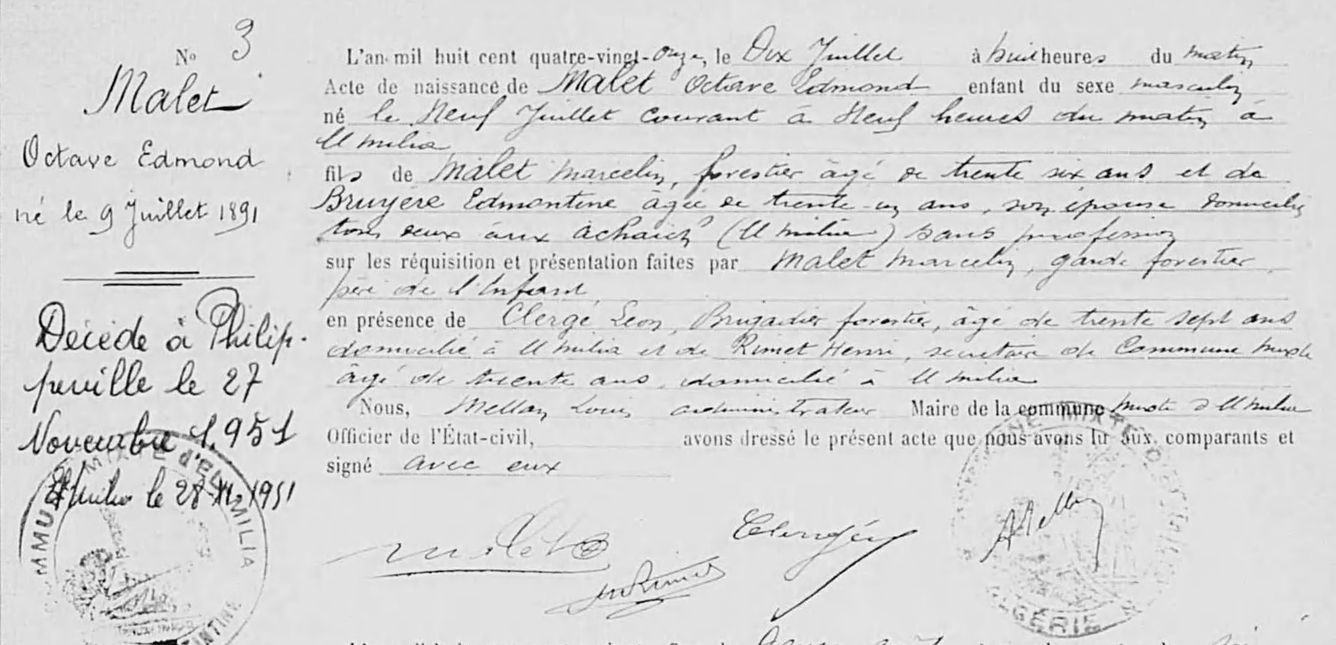 N° 3
Malet
Octave Edmond
né le 9 Juillet 1891
Décédé à Philip-
peville le 27
Novembre 1951
El Milia le 28-XI-1951
COMMUNE MIXTE d'EL-MILIA
L'an mil huit cent quatre-vingt-onze, le Dix Juillet à huit heures du matin
Acte de naissance de Malet Octave Edmond enfant du sexe masculin
né le Neuf Juillet courant à Neuf heures du matin à
El Milia
fils de Malet Marcelin, forestier âgé de trente six ans et de
Bruyère Edmontine âgée de trente-un ans, son épouse domiciliés
tous deux aux Achaich (El Milia) sans profession
sur les réquisition et présentation faites par Malet Marcelin, garde forestier,
père de l'Enfant
en présence de Clergé Léon, Brigadier forestier, âgé de trente sept ans
domicilié à El Milia et de Rimet Henri, secrétaire de Commune mixte
âgé de trente ans, domicilié à El Milia
Nous, Mellan Louis administrateur Maire de la commune mixte d'El Milia
Officier de l'État-civil, avons dressé le présent acte que nous avons lu aux comparants et
signé avec eux
Malet Clergé
Rimet
COMMUNE MIXTE D'EL-MILIA
ALGÉRIE